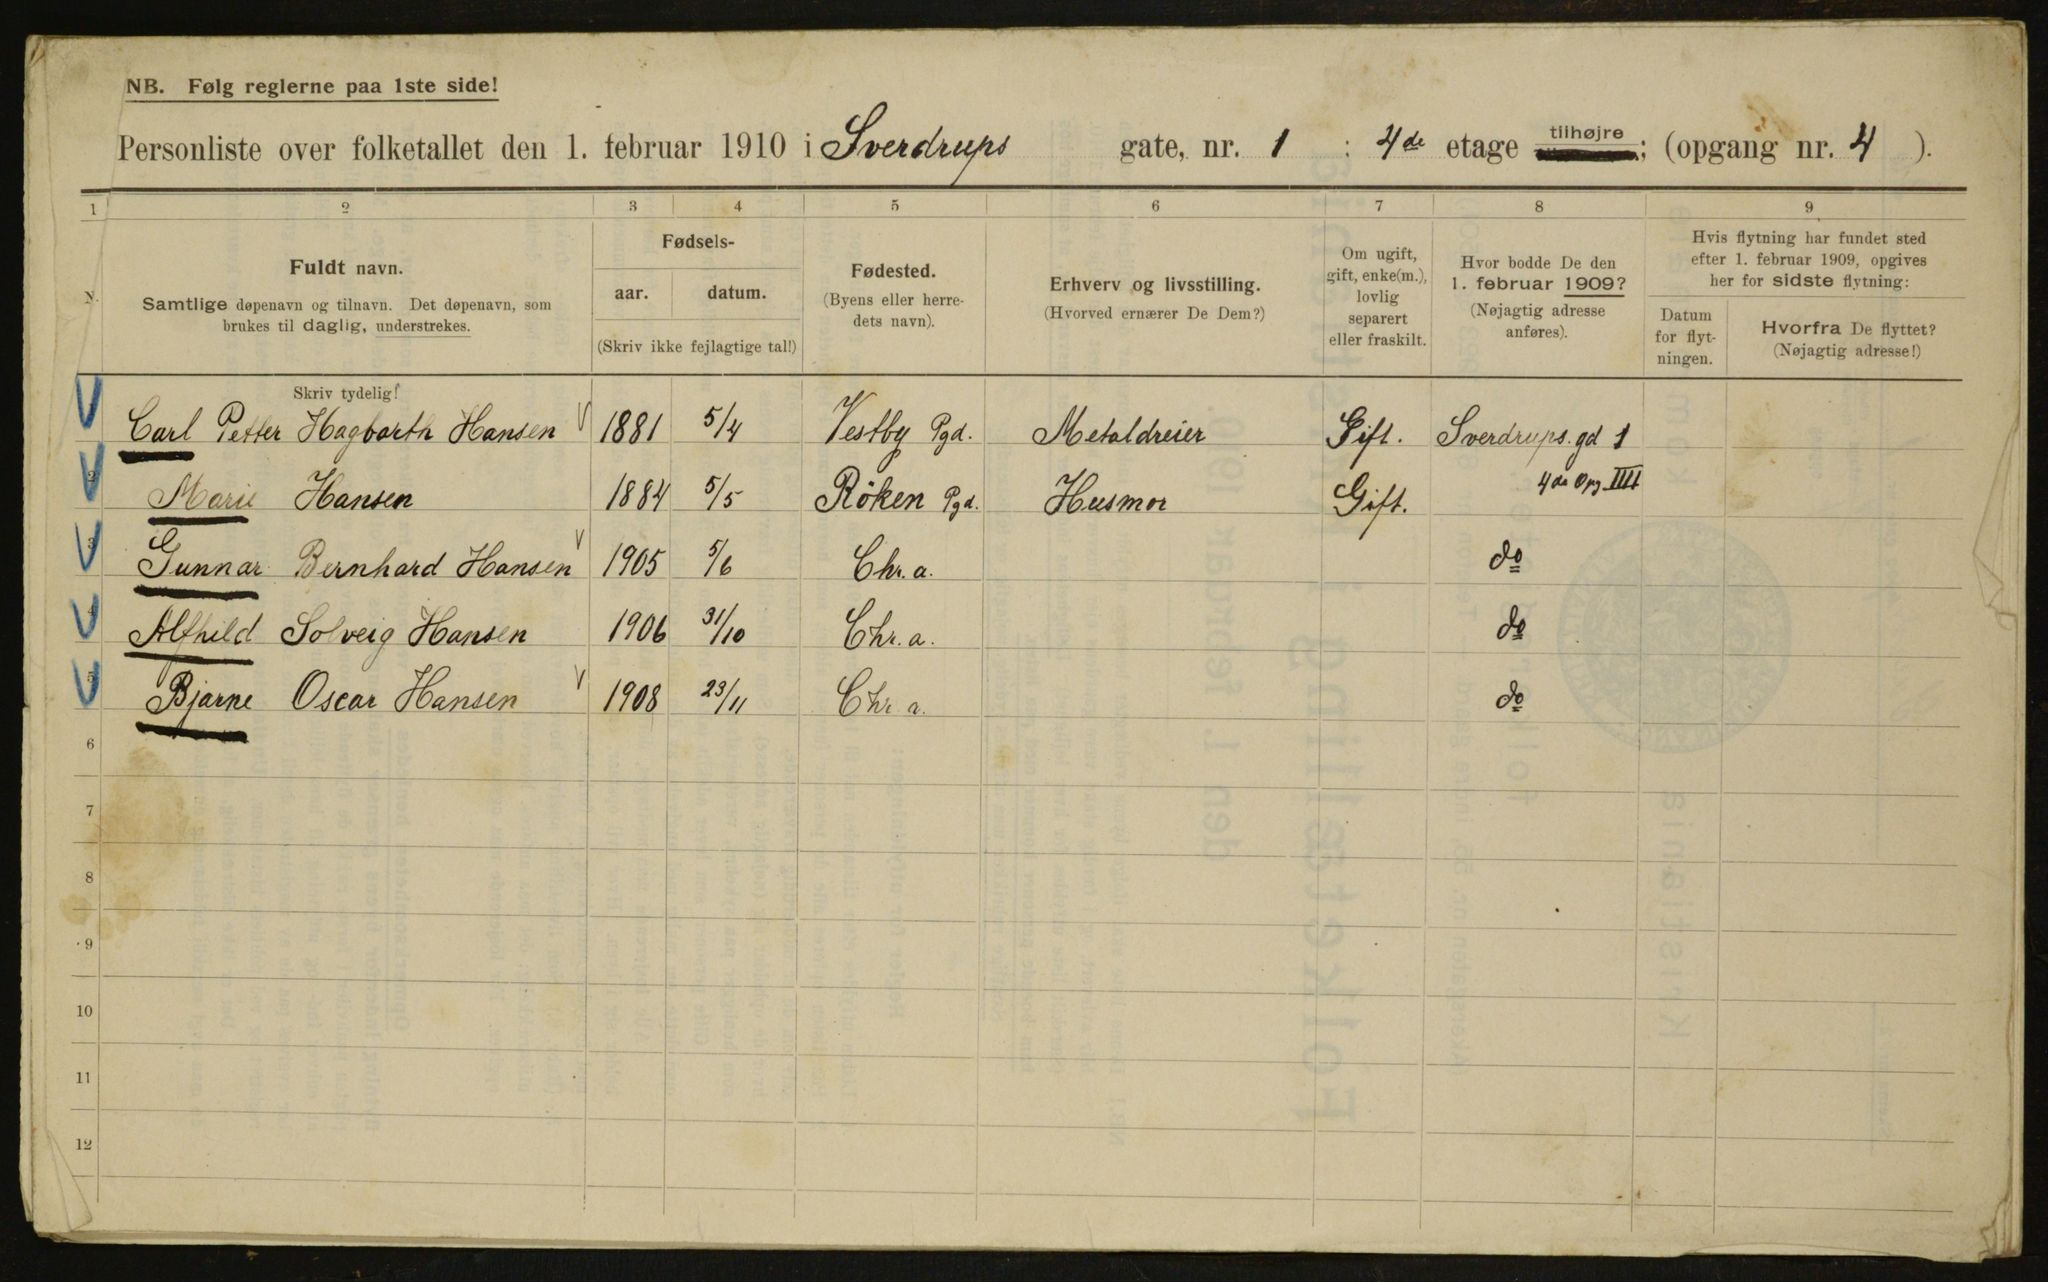 NB. Følg reglerne paa 1ste side!
Personliste over folketallet den 1. februar 1910 i Sverdrups gate, nr. 1 : 4de etage tilhøjre; (opgang nr. 4 ).
1 2 3 4 5 6 7 8 9
N.
Fuldt navn.
Samtlige døpenavn og tilnavn. Det døpenavn, som
brukes til daglig, understrekes.
Fødsels-
aar. datum.
(Skriv ikke fejlagtige tal!)
Fødested.
(Byens eller herre-
dets navn).
Erhverv og livsstilling.
(Hvorved ernærer De Dem?)
Om ugift,
gift, enke(m.),
lovlig
separert
eller fraskilt.
Hvor bodde De den
1. februar 1909?
(Nøjagtig adresse
anføres).
Hvis flytning har fundet sted
efter 1. februar 1909, opgives
her for sidste flytning:
Datum
for flyt-
ningen.
Hvorfra De flyttet?
(Nøjagtig adresse!)
Skriv tydelig!
Carl Petter Hagbarth Hansen V 1881 5/4 Vestby Pgd. Metaldreier Gift. Sverdrups. gd 1
2 Marie Hansen 1884 5/5 Røken Pgd. Husmor Gift. 4de Opg IIII
3 Gunnar Bernhard Hansen V 1905 5/6 Chr. a. do
4 Alfhild Solveig Hansen 1906 31/10 Chr. a. do
5 Bjarne Oscar Hansen V 1908 23/11 Chr. a. do
6
7
8
9
10
11
12